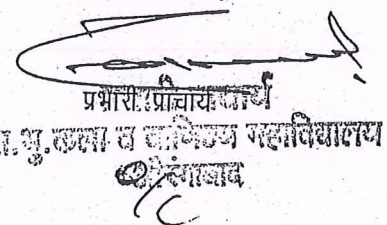 प्रभारी प्राचार्य
भु. कला व वाणिज्य महाविद्यालय
औरंगाबाद